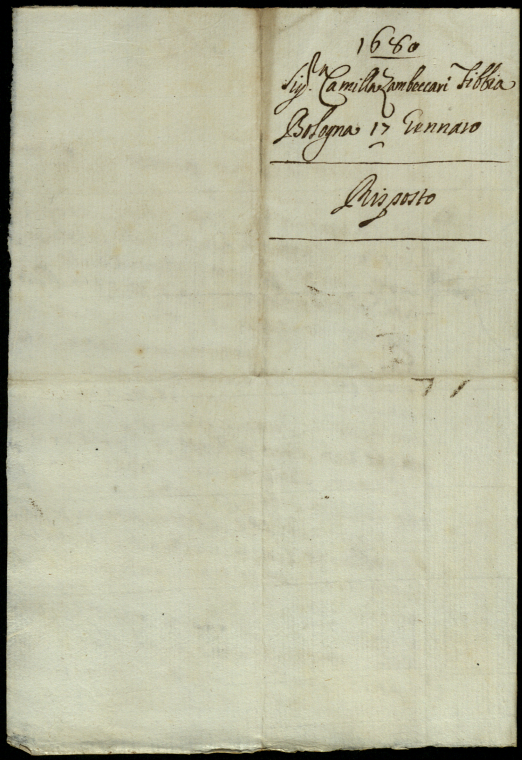 1680
Sig.ra Camilla Zambeccari Fibbia
Bologna 17 Gennaro
Risposto